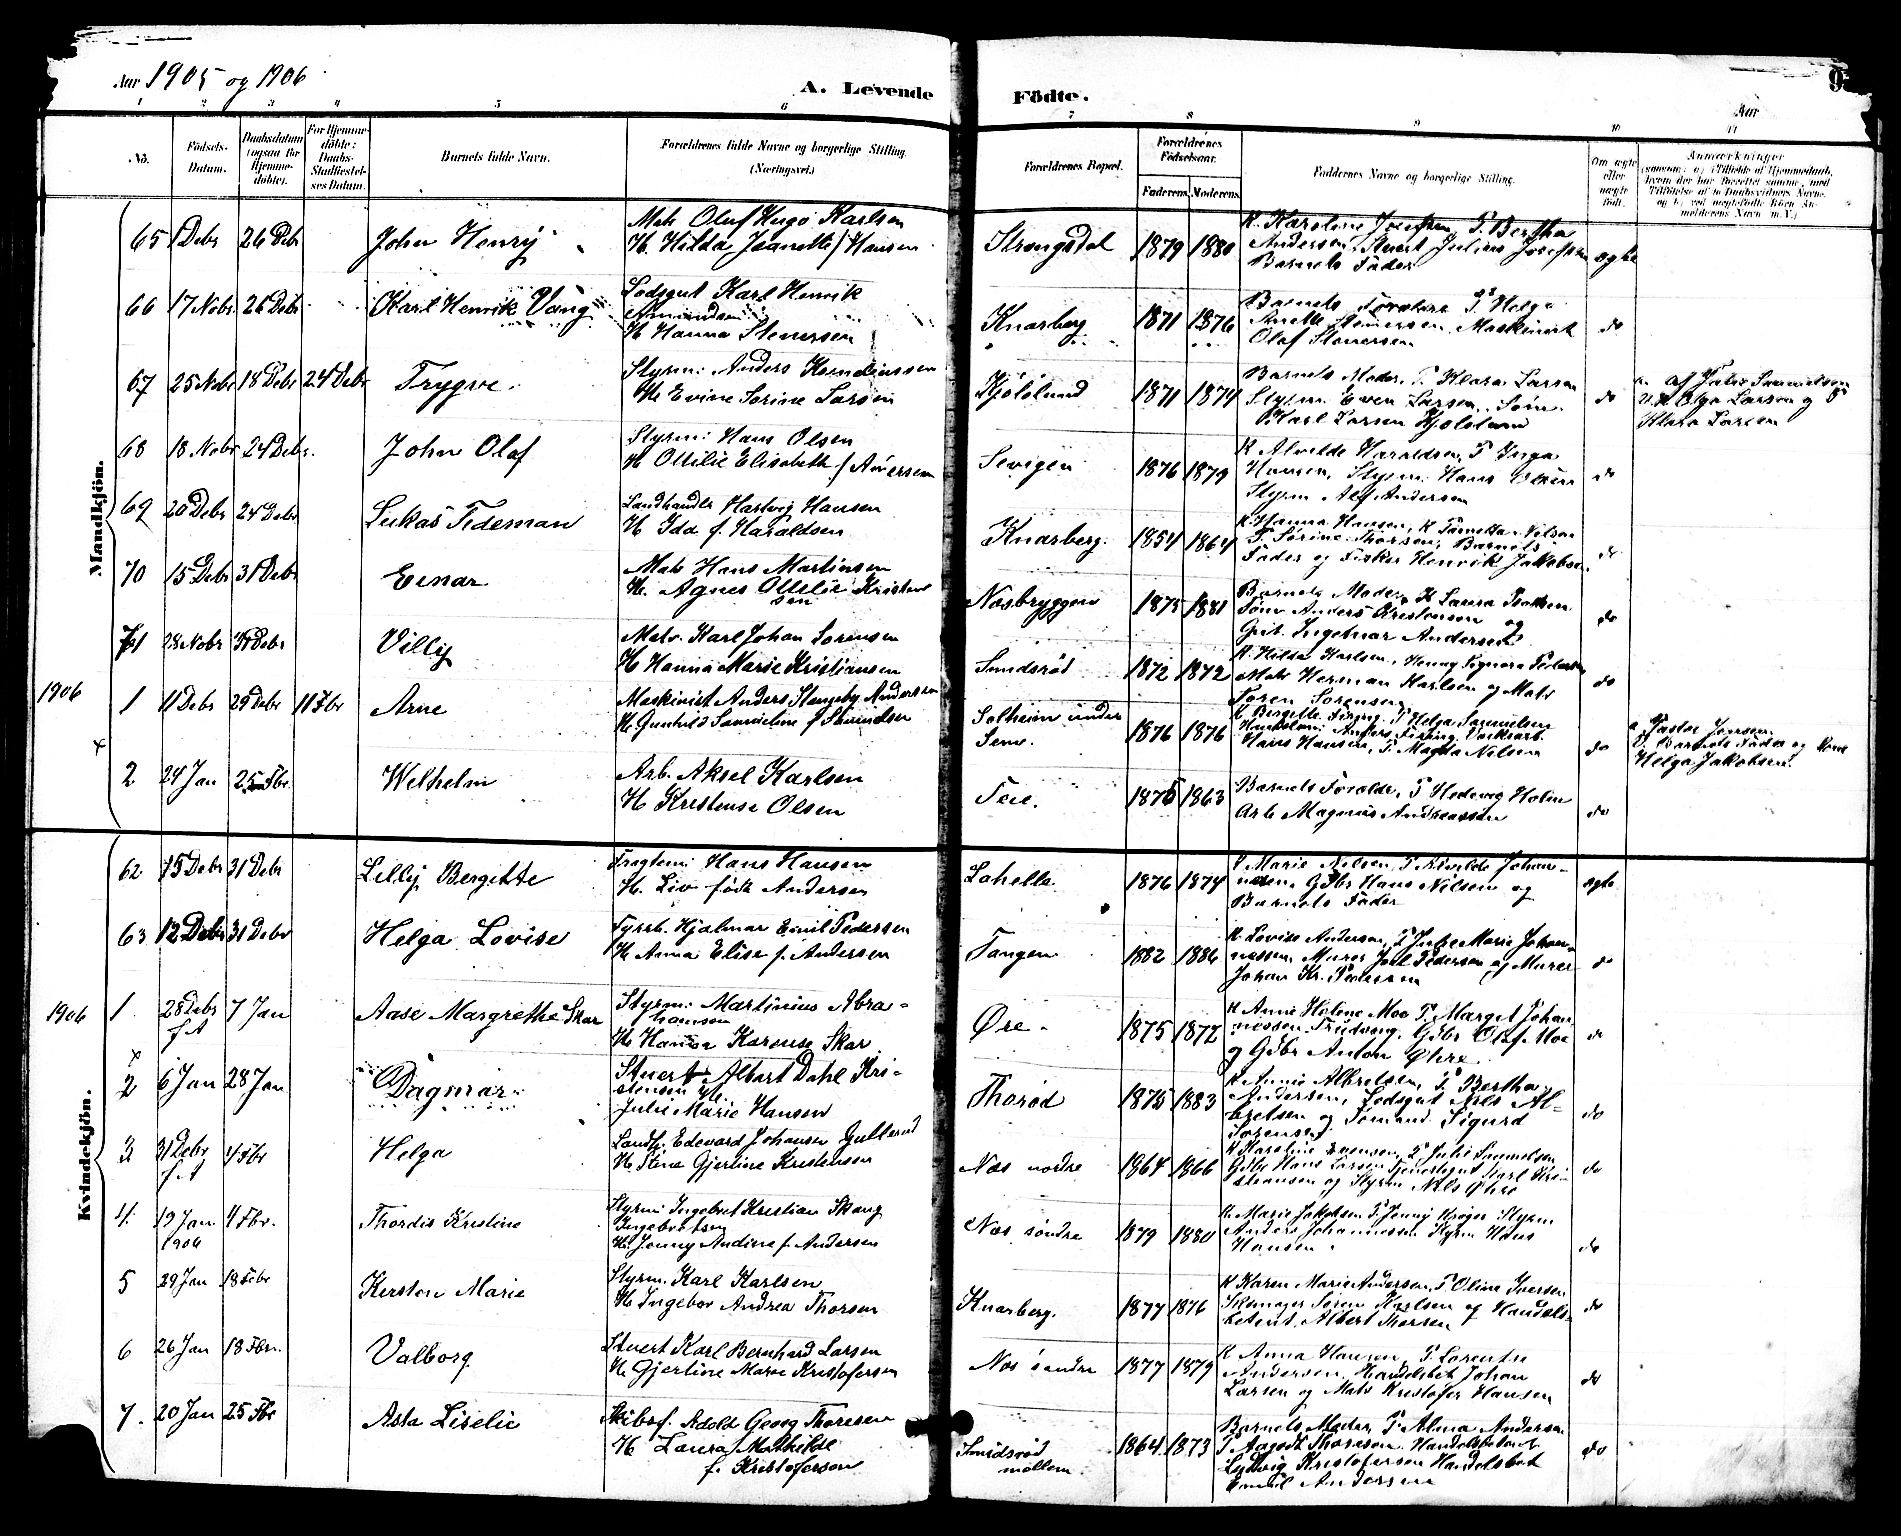 Aar 1905 og 1906
A. Levende Födte.
9
Aar
1 2 3 4 5 6 7 8 9 10 11
No.
Födsels-Datum.
Daabsdatum (ogsaa for Hjemmedöbte).
For Hjemmedöbte: Daabs-Stadfæstelses Datum.
Barnets fulde Navn.
Forældrenes fulde Navne og borgerlige Stilling. (Næringsvei.)
Forældrenes Bopæl.
Forældrenes Födselsaar.
Faderens. Moderens.
Faddernes Navne og borgerlige Stilling.
Om ægte eller uægte födt.
Anmærkninger
Mandkjön.
65 1 Debr 26 Debr John Henry
Matr Oluf Hugo Karlsen
H. Hilda Jeanette f Hansen
Strengsdal 1879 1880
K. Karoline Josefsen, P. Bertha
Andersen, Stuert Julius Josefsen
Barnets Fader
ægte
66 17 Nobr 26 Debr Karl Henrik Vang
Lodsgut Karl Henrik
Amundsen
H Hanna Stenersen
Knarberg 1871 1876
Barnets Forældre P Helga
Anette Stenersen, Maskinist
Olaf Stenersen
do
67 25 Nobr 18 Debr 24 Debr Trygve
Styrm: Anders Korneliussen
H Evine Sorine Larsen
Kjölölund 1871 1874
Barnets Moder, P. Klara Larsen
Styrm Even Larsen, Söm.
Karl Larsen Kjölölund
do
V. Olga Larsen og
Klara Larsen
68 18 Nobr 24 Debr. John Olaf
Styrm: Hans Olsen
H Ottilie Elisabeth f Andersen
Sevigen 1876 1879
K Alvilde Haraldsen, P Inga
Hansen, Styrm Hans
Styrm Alf Andersen
do
69 20 Debr 24 Debr Lukas Tedeman
Landhandler Hartvig Hansen
H Ida f. Haraldsen
Knarberg. 1854 1864
K. Hanna Hansen, K Tomette Nilsen
P. Sörine Thorsen, Barnets
Fader og Fisker Henrik Jakobsen.
do
70 15 Debr 31 Debr Einar
Matr Hans Martinsen
H. Agnes Ottilie Kristensen
Næsbryggen 1875 1881
Barnets Moder, K Laura Isaksen
Töm Anders Kristensen og
Grit. Ingelmar Andersen
do
71 28 Nobr 31 Debr Villy
Matr. Karl Johan Sörensen
H Hanna Marie Kristiansen
Smidsröd 1872 1872
K. Hilda Karlsen, Henny Signora Pedersen
Matr Herman Karlsen og Matr
Sören Sörensen
do
1906
1 11 Debr 29 Debr 11 Fbr Arne
Maskinist Anders Stangeby Andersen
H. Gunhild Samueline f Svendsen
Solheim under
Seme. 1876 1876
K Bergette Firing, P Helga Samuelsen
Anders Firing, Værksarb.
Hans Hansen, P. Magda Nilsen
do
a. Pastor Jonssen.
V. Barnets Fader og
Helga Jakobsen.
2 24 Jan 25 Fbr Welhelm
Arb. Aksel Karlsen
H Kristense Olsen
Teie. 1875 1863
Barnets Forældre, P Hedevig Holm
Arb Magnus Andreassen
do
Kvindekjön.
62 15 Debr 31 Debr Lilly Bergitte
Fragtem: Hans Hansen
H. Liv födt Andersen
Lahelle. 1876 1874
K Marie Nilsen, P. Alvilde Johannesen, Gdbr Hans Nilsen og
Barnets Fader
ægte
63 12 Debr 31 Debr Helga Lovise
Fyrb. Hjalmar Emil Pedersen
H Anna Elise f. Andersen
Tangen 1882 1886
K. Lovise Andersen, P Julie Marie Johannessen, Murer Joel Pedersen og Murer
Johan Kr. Pedersen
do
1906
1. 28 Debr f A 7 Jan Aase Margrethe Skar
Styrm: Martinius Abrahamsen
H Hanna Karense Skar
Øre. 1875 1872
K Anne Helene Moe P. Margit Johannessen Trudvang, Gdbr Olaf Moe
og Gdbr Anton Øhre.
do
2 6 Jan 28 Jan Dagmar
Stuert Albert Dahl Kristensen H.
Julie Marie Hansen
Thoröd 1875 1883
K Annie Albretsen, P. Bertha
Andersen, Lodsgut Nils Albretsen og Tömand. Sigurd
Sörensen.
do
3 31 Debr f A 4 Fbr Helga
Landh. Edevard Johansen Gullerud
H Stine Gjertine Kristensen
Næs nordre 1864 1866
K Karoline Evensen, P Julie Samuelsen
Gdbr Hans Larsen Tjenestegut Karl Kristiansen og Styrm Nils Øhre
do
4. 19 Jan 1906 4 Fbr. Thordis Kristine
Styrm: Ingebret Kristian Skaug
Ingebretsen
H. Jenny Andine f. Andersen
Næs söndre 1879 1880
K. Marie Jakobsen P. Jenny Kröger Styrm
Anders Johannessen Styrm Hans
Hansen.
do
5 29 Jan 18 Febr Kirsten Marie
Styrm. Karl Karlsen
H Ingebor Andrea Thorsen
Knarberg. 1877 1876
K Karen Marie Andersen, P. Oline Iversen
Sölmager Sören Karlsen og Handelsbetjent. Albert Thorsen
do
6 26 Jan 18 Fbr. Valborg
Stuert Karl Bernhard Larsen
H. Gjertine Marie Kristofersen
Næs söndre 1877 1879
K Anna Hansen, P. Lorentse
Andersen, Handelsbet Johan
Larsen og Matr Kristofer Hansen
do
7. 20 Jan 25 Fbr Asta Liselie
Skibsf. Adolf Georg Thoresen
H Laura Mathilde
f. Kristofersen
Smidsröd
möllem. 1864 1873
Barnets Moder, P. Alma Andersen
P Aagodt Thoresen, Handelsbetent
Ludvig Kristofersen Handelsbet
Emil Andersen
do